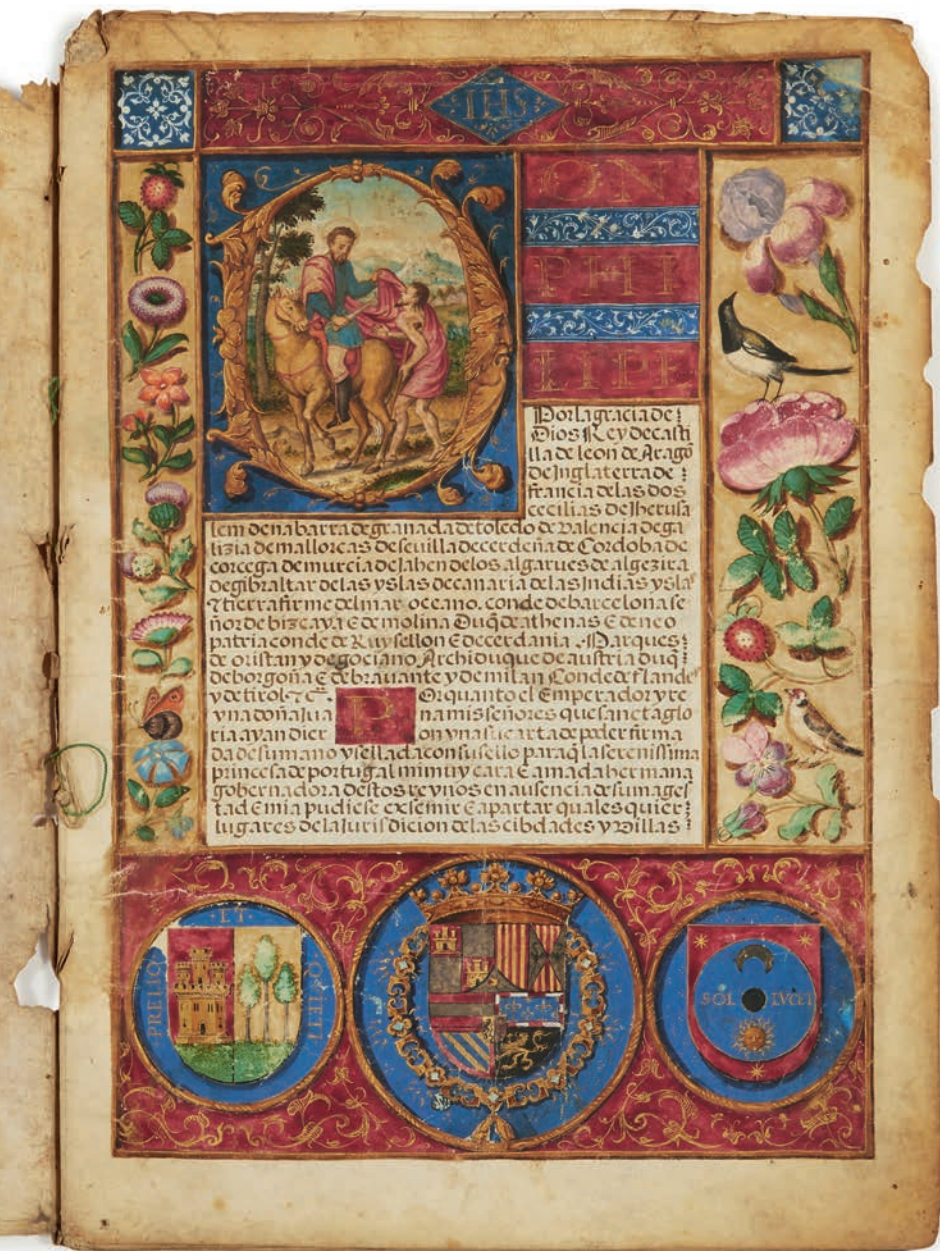 IHS
ON
PHI
LIPE
Por la gracia de :
Dios Rey de casti
lla de leon de Aragõ
de Inglaterra de :
francia de las dos
cecilias de Jherusa
lem de nabarra de granada de toledo de valencia de ga
lizia de mallorcas de sevilla de cerdeña de Cordoba de
corcega de murcia de Jahen delos algarues de algezira
de gibraltar de las yslas de canaria de las Indias ysla
7 tierra firme del mar oceano. conde de barcelona se
ñor de bizcaya E de molina Duq̃ de athenas E de neo
patria conde de Ruysellon E de cerdania . Marques :
de oristan y de gociano Archiduque de austria duq̃ :
de borgoña E de brauante y de milan Conde de flande
y de tirol 7 cª. POr quanto el Emperador y re
yna doña Jua na mis señores que sancta glo
ria ayan dier on vna su carta de poder firma
da de su mano y sellada con su sello para q̃ la serenissima
princesa de portugal mi muy cara E amada hermana
gobernadora destos reynos en ausencia de su mages
tad E mia pudiese exsemir E apartar quales quier :
lugares de la Jurisdicion de las cibdades y villas :
PRELIO ·ET· QVIETI
SOL LVCET